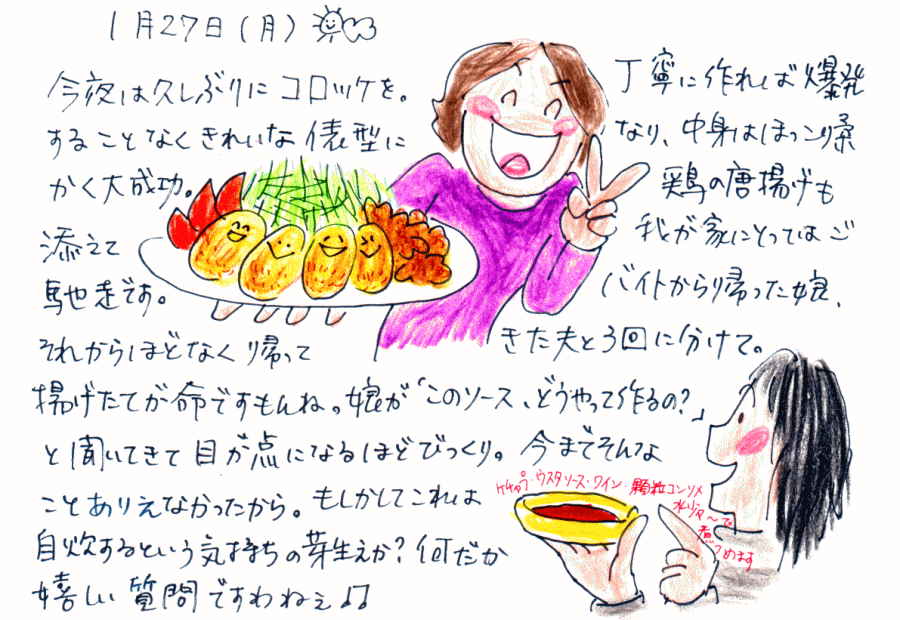 1月27日(月)
今夜は久しぶりにコロッケを。丁寧に作れば爆発
することなくきれいな俵型になり、中身はほっこり柔
かく大成功。鶏の唐揚げも
添えて我が家にとってはご
馳走です。バイトから帰った娘、
それからほどなく帰ってきた夫と3回に分けて。
揚げたてが命ですもんね。娘が「このソース、どうやって作るの?」
と聞いてきて目が点になるほどびっくり。今までそんな
ことありえなかったから。もしかしてこれは
自炊するという気持ちの芽生えか?何だか
嬉しい質問ですわねぇ♪♫
ケチャップ・ウスタソース・ワイン・顆粒コンソメ
煮つめます